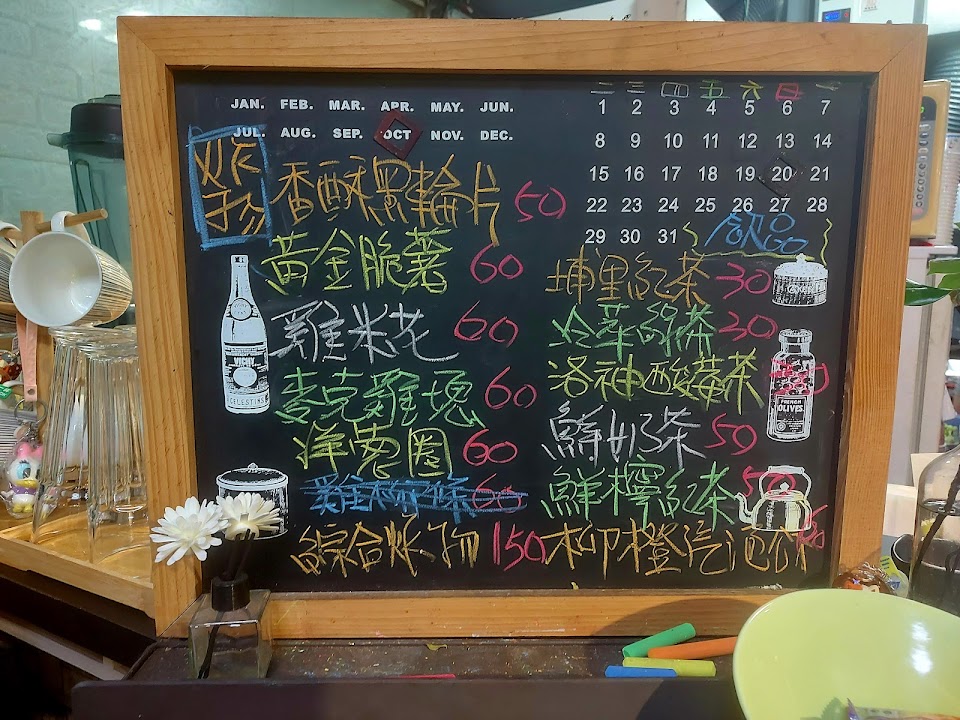 JAN. FEB. MAR. APR. MAY. JUN.
JUL. AUG. SEP. OCT NOV. DEC.
二 三 四 五 六 日 一
1 2 3 4 5 6 7
8 9 10 11 12 13 14
15 16 17 18 19 20 21
22 23 24 25 26 27 28
29 30 31
炸物
香酥黑輪片 50
黃金脆薯 60
雞米花 60
麥克雞塊 60
洋蔥圈 60
雞柳條 60
綜合炸物 150
飲品
埔里紅茶 30
冷萃綠茶 30
洛神酸莓茶
鮮奶茶 50
鮮檸紅茶 50
柳橙汽泡飲
VICHY
CELESTINS
FRENCH
OLIVES